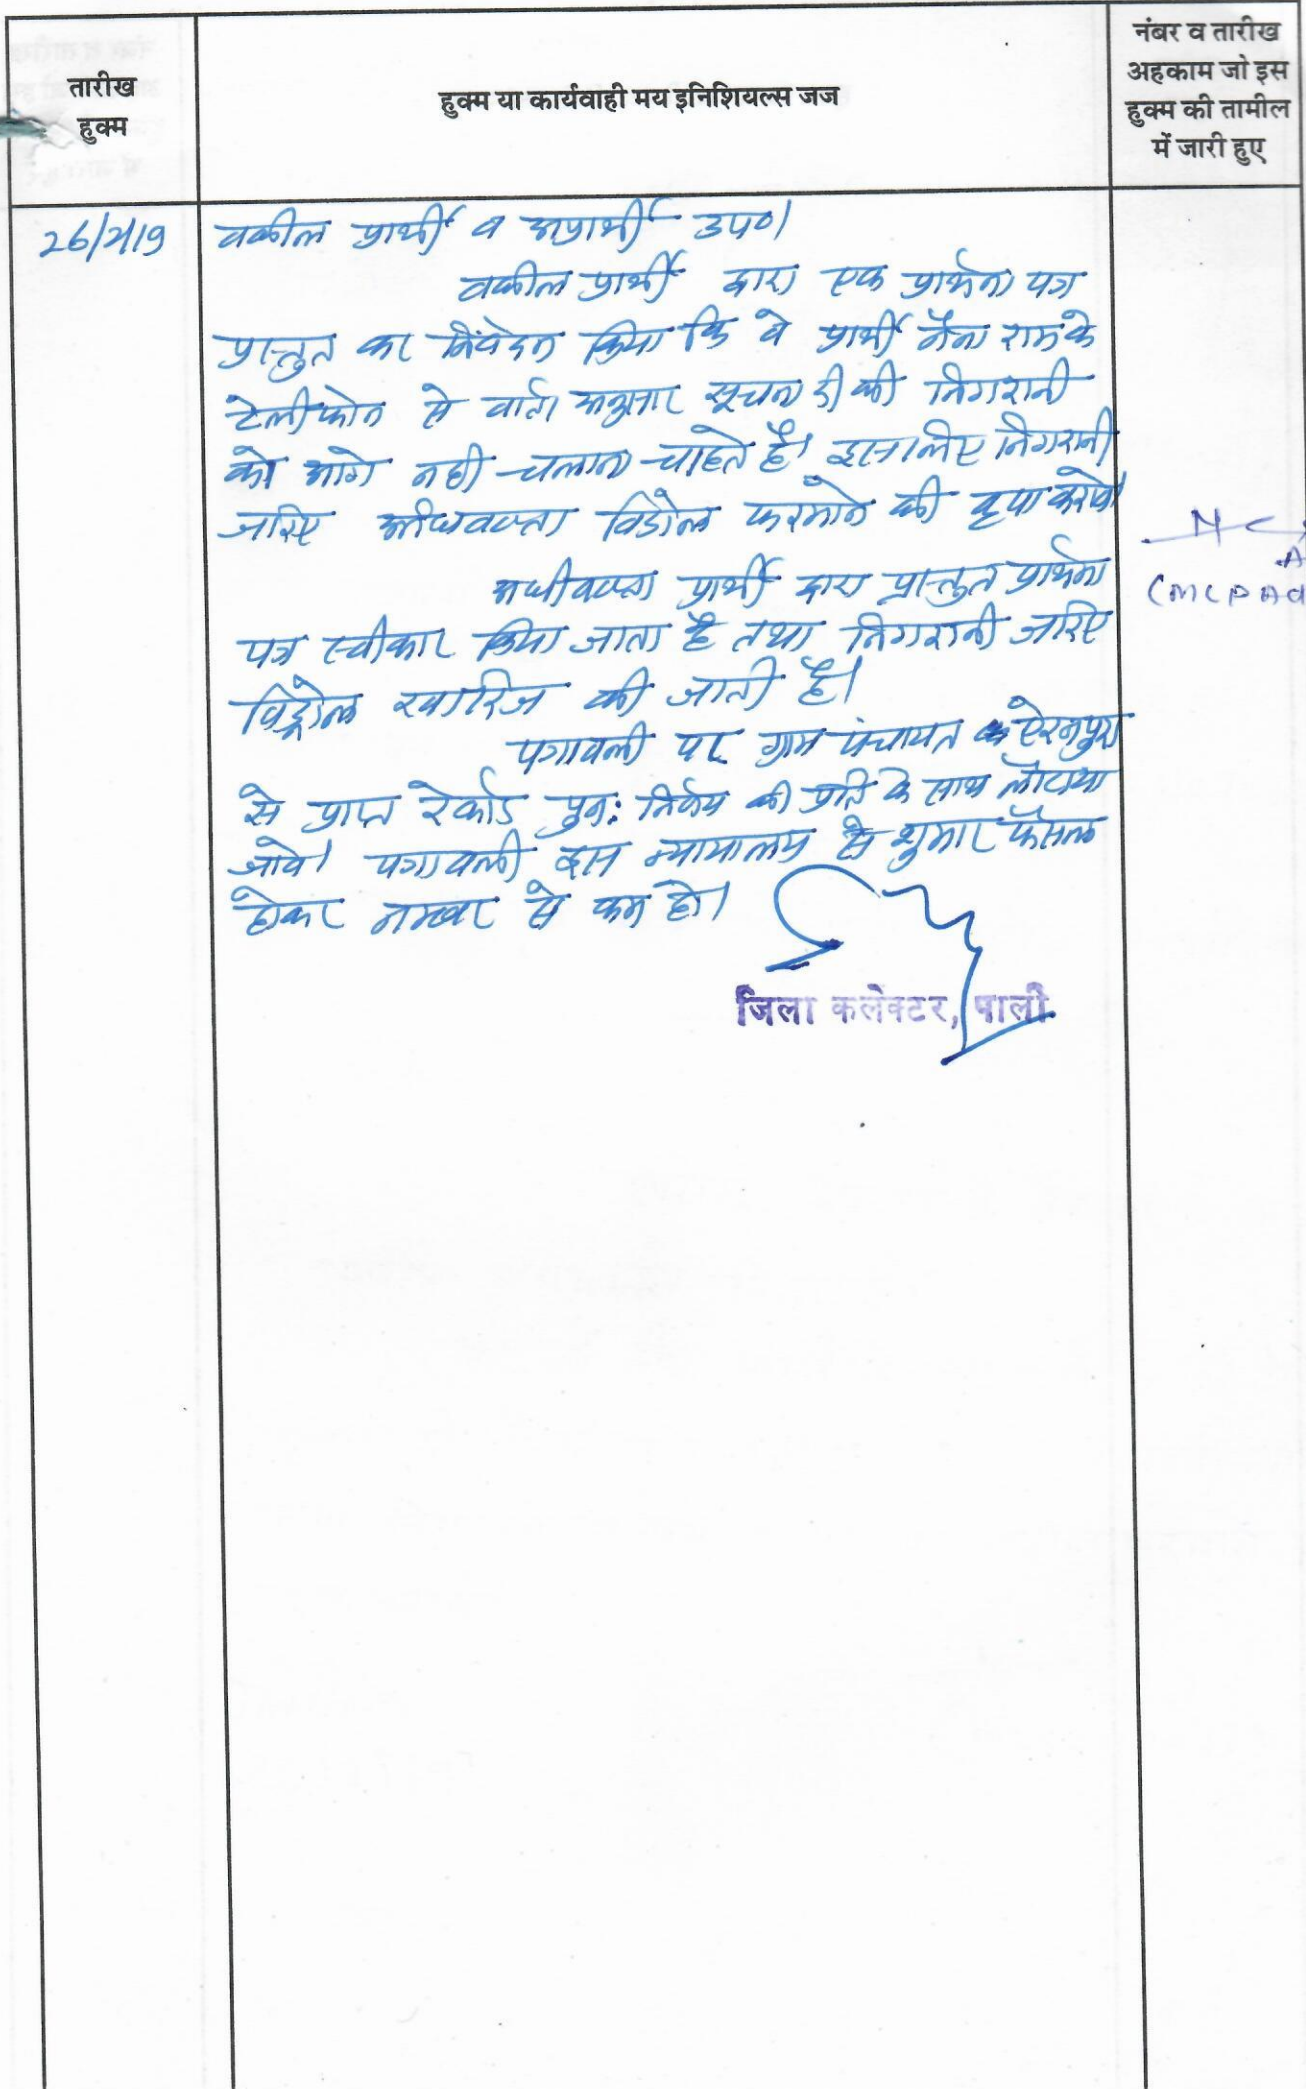 तारीख
हुक्म
हुक्म या कार्यवाही मय इनिशियल्स जज
नंबर व तारीख
अहकाम जो इस
हुक्म की तामील
में जारी हुए
26/2/19
वकील प्रार्थी व अप्रार्थी उप०।
वकील प्रार्थी द्वारा एक प्रार्थना पत्र
प्रस्तुत कर निवेदन किया कि वे प्रार्थी राम के
टेलीफोन से वार्ता अनुसार सूचना दी की निगरानी
को आगे नही चलाना चाहते है। इसलिए निगरानी
जरिए अधिवक्ता विड्रोल फरमाने की कृपा करावे।
अधीवक्ता प्रार्थी द्वारा प्रस्तुत प्रार्थना
पत्र स्वीकार किया जाता है तथा निगरानी जरिए
विड्रोल खारिज की जाती है।
पत्रावली पर ग्राम पंचायत ऐरनपुरा
से प्राप्त रेकॉर्ड पुन: निर्णय की प्रति के साथ लौटाया
जावे। पत्रावली इस न्यायालय से शुमार फैसल
होकर नम्बर से कम हो।
जिला कलेक्टर, पाली